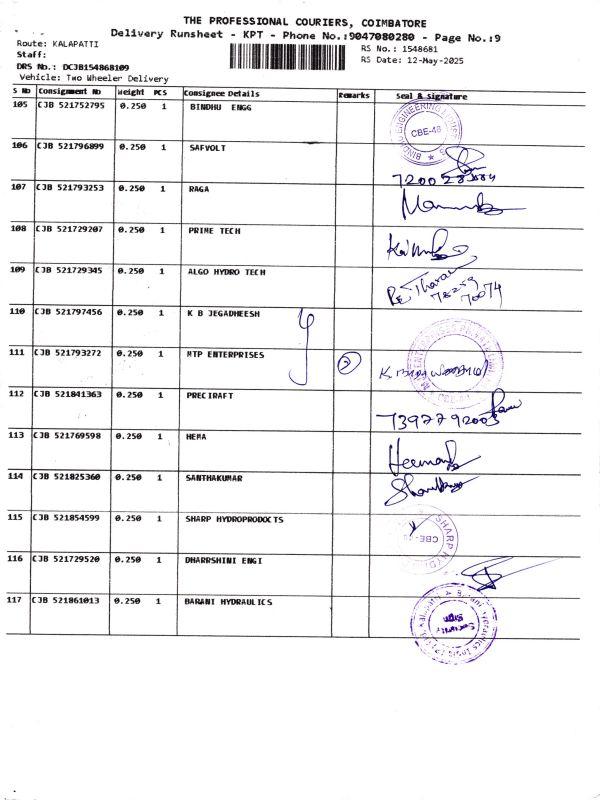 THE PROFESSIONAL COURIERS, COIMBATORE
Delivery Runsheet - KPT - Phone No.:9047080280 - Page No.:9
Route: KALAPATTI
RS No.: 1548681
Staff:
RS Date: 12-May-2025
DRS No.: DCJB154868109
Vehicle: Two Wheeler Delivery
S No Consignment No Weight PCS Consignee Details Remarks Seal & Signature
105 CJB 521752795 0.250 1 BINDHU ENGG
BINDHU ENGINEERING CBE-48
106 CJB 521796899 0.250 1 SAFVOLT
107 CJB 521793253 0.250 1 RAGA
108 CJB 521729207 0.250 1 PRIME TECH
109 CJB 521729345 0.250 1 ALGO HYDRO TECH
78259
70074
110 CJB 521797456 0.250 1 K B JEGADHEESH
111 CJB 521793272 0.250 1 MTP ENTERPRISES
112 CJB 521841363 0.250 1 PRECIRAFT
7397792003
113 CJB 521769598 0.250 1 HEMA
114 CJB 521825360 0.250 1 SANTHAKUMAR
115 CJB 521854599 0.250 1 SHARP HYDROPRODOCTS
SHARP HYD CBE-48
116 CJB 521729520 0.250 1 DHARRSHINI ENGI
117 CJB 521861013 0.250 1 BARANI HYDRAULICS